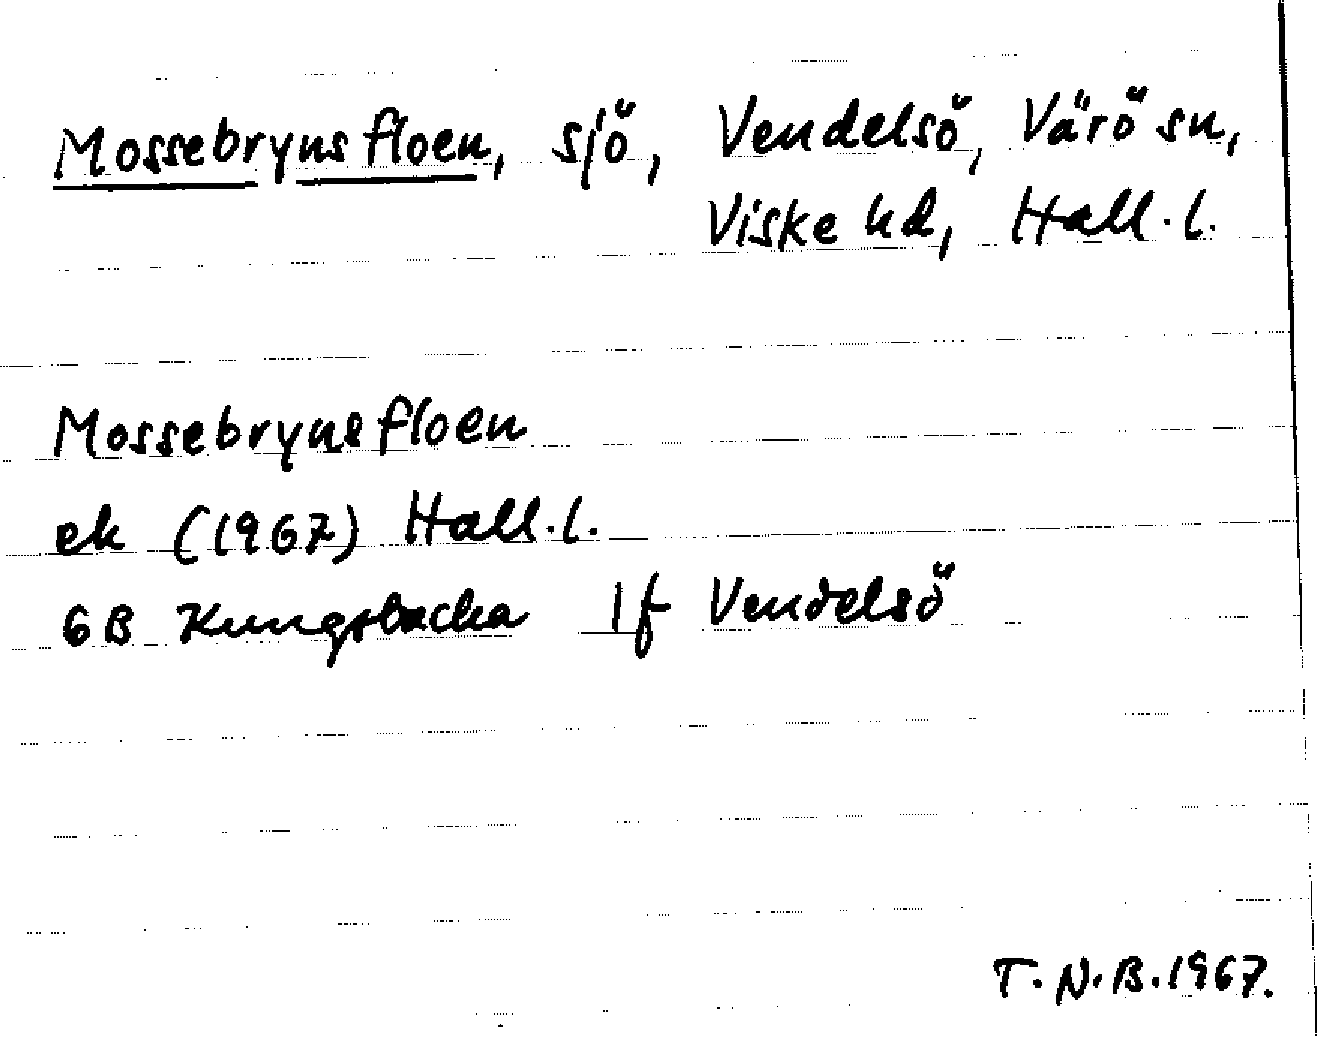 Mossebrynsfloen, sjö, Vendelsö, Värö sn,
Viske hd, Hall.l.
Mossebrynsfloen
ek (1967) Hall.l.
6B Kungsbacka 1f Vendelsö
T.N.B.1967.